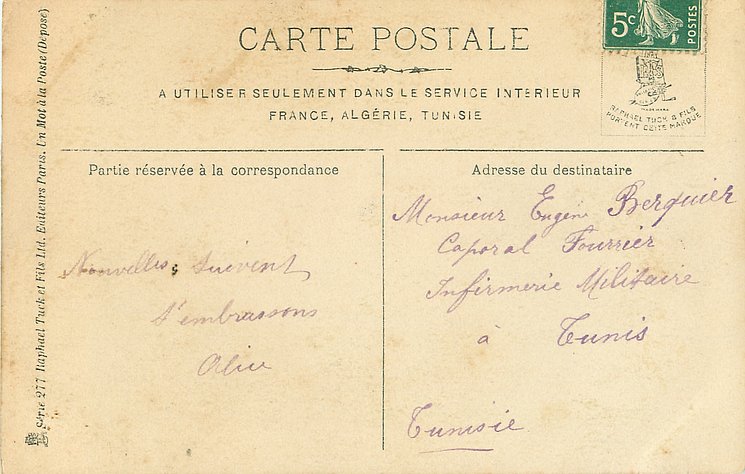 CARTE POSTALE
A UTILISER SEULEMENT DANS LE SERVICE INTERIEUR
FRANCE, ALGÉRIE, TUNISIE
5c
POSTES
RAPHAEL TUCK & FILS
PORTENT CETTE MARQUE
Partie réservée à la correspondance
Nouvelles suivent
t'embrassons
Alice
Adresse du destinataire
Monsieur Eugène Berquier
Caporal Fourrier
Infirmerie Militaire
à Tunis
Tunisie
Série 277 Raphael Tuck et Fils Ltd. Editeurs Paris. Un Mot à la Poste (Déposé)